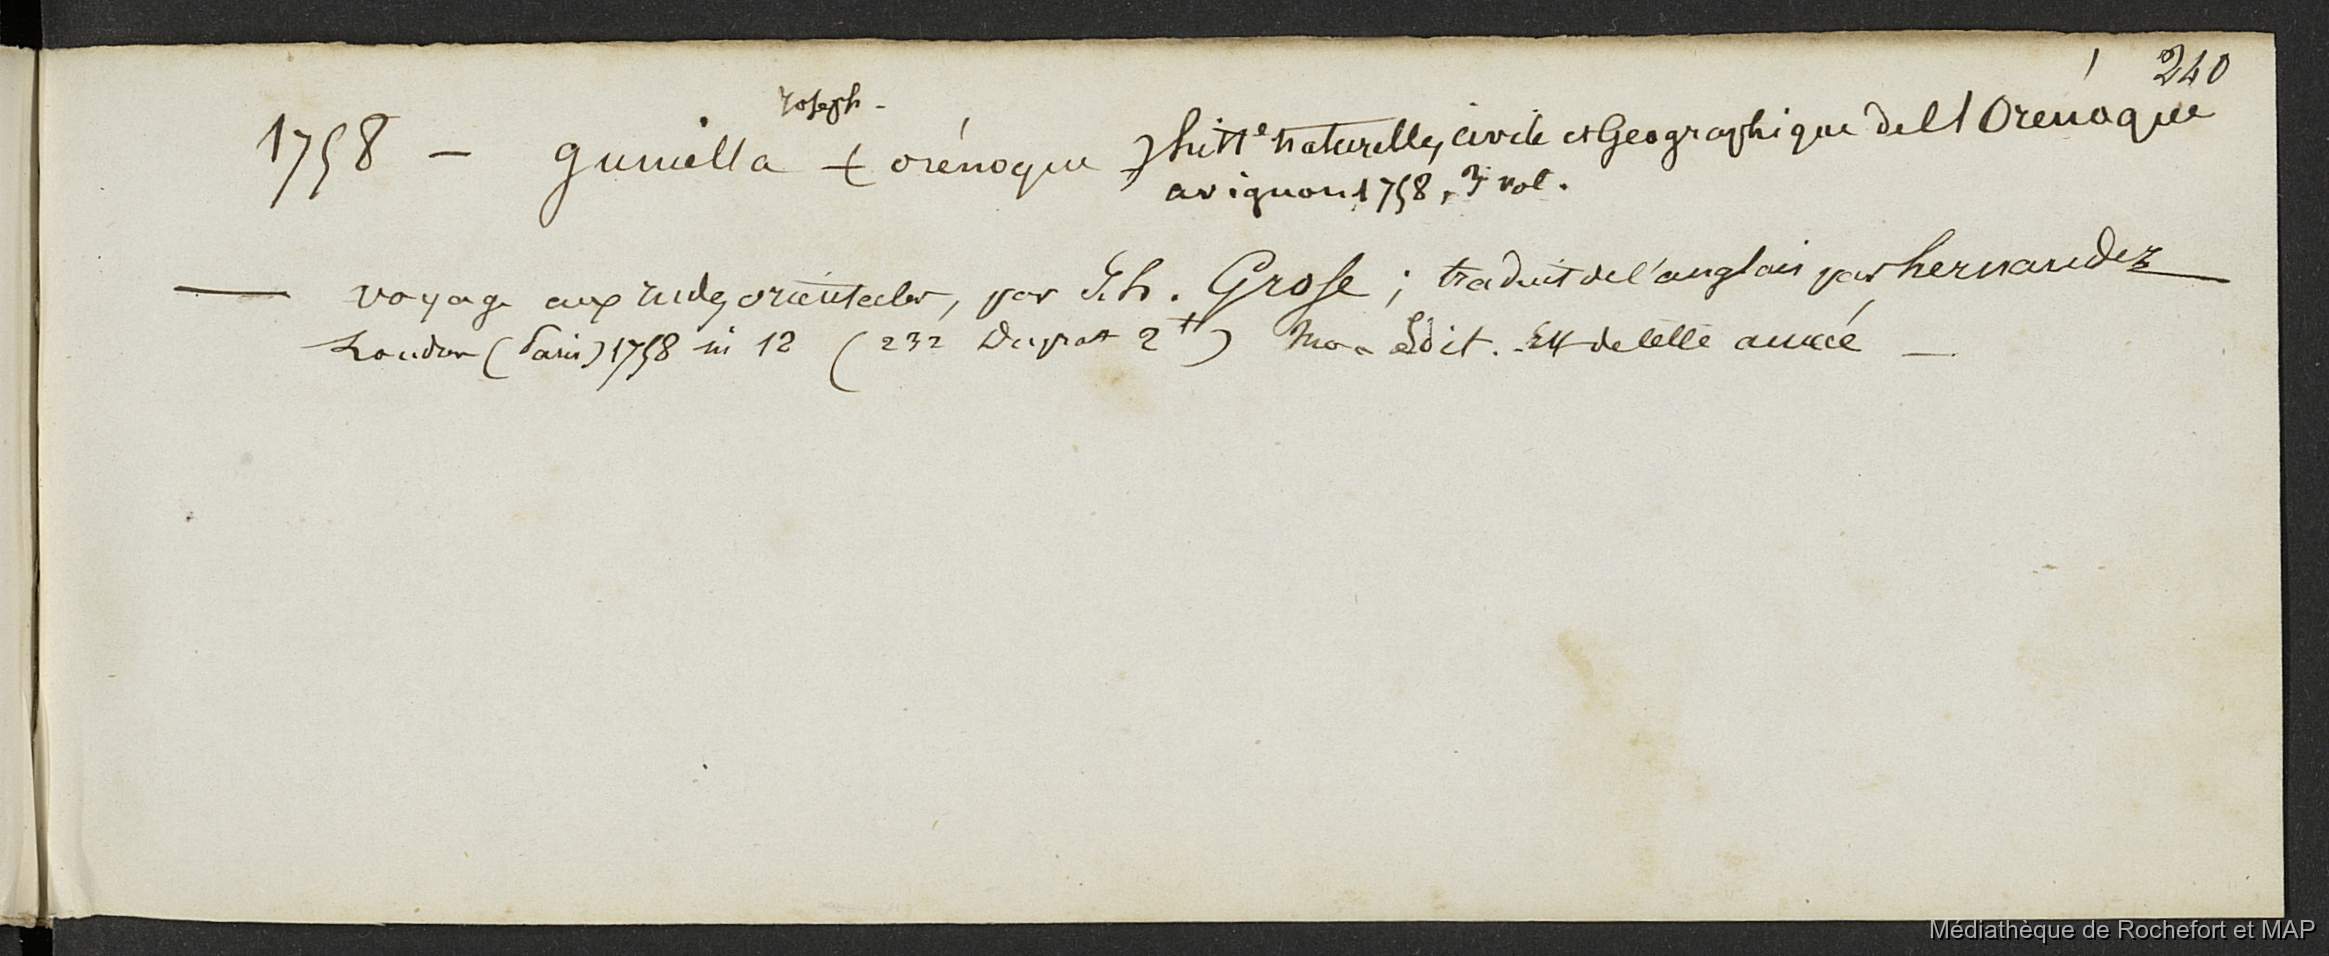 240
1758 — gumella + orénoque } Joseph - hitte naturelle, civile et Geographique de l'Orénoque
avignon 1758, 3 vol.
— voyage aux indes orientales, par Th. Grose ; traduit de l'anglais par hernandez
London (Paris) 1758 in 12 (232 Duprat 2tt) mon Edit. Est de cette année —
Médiathèque de Rochefort et MAP